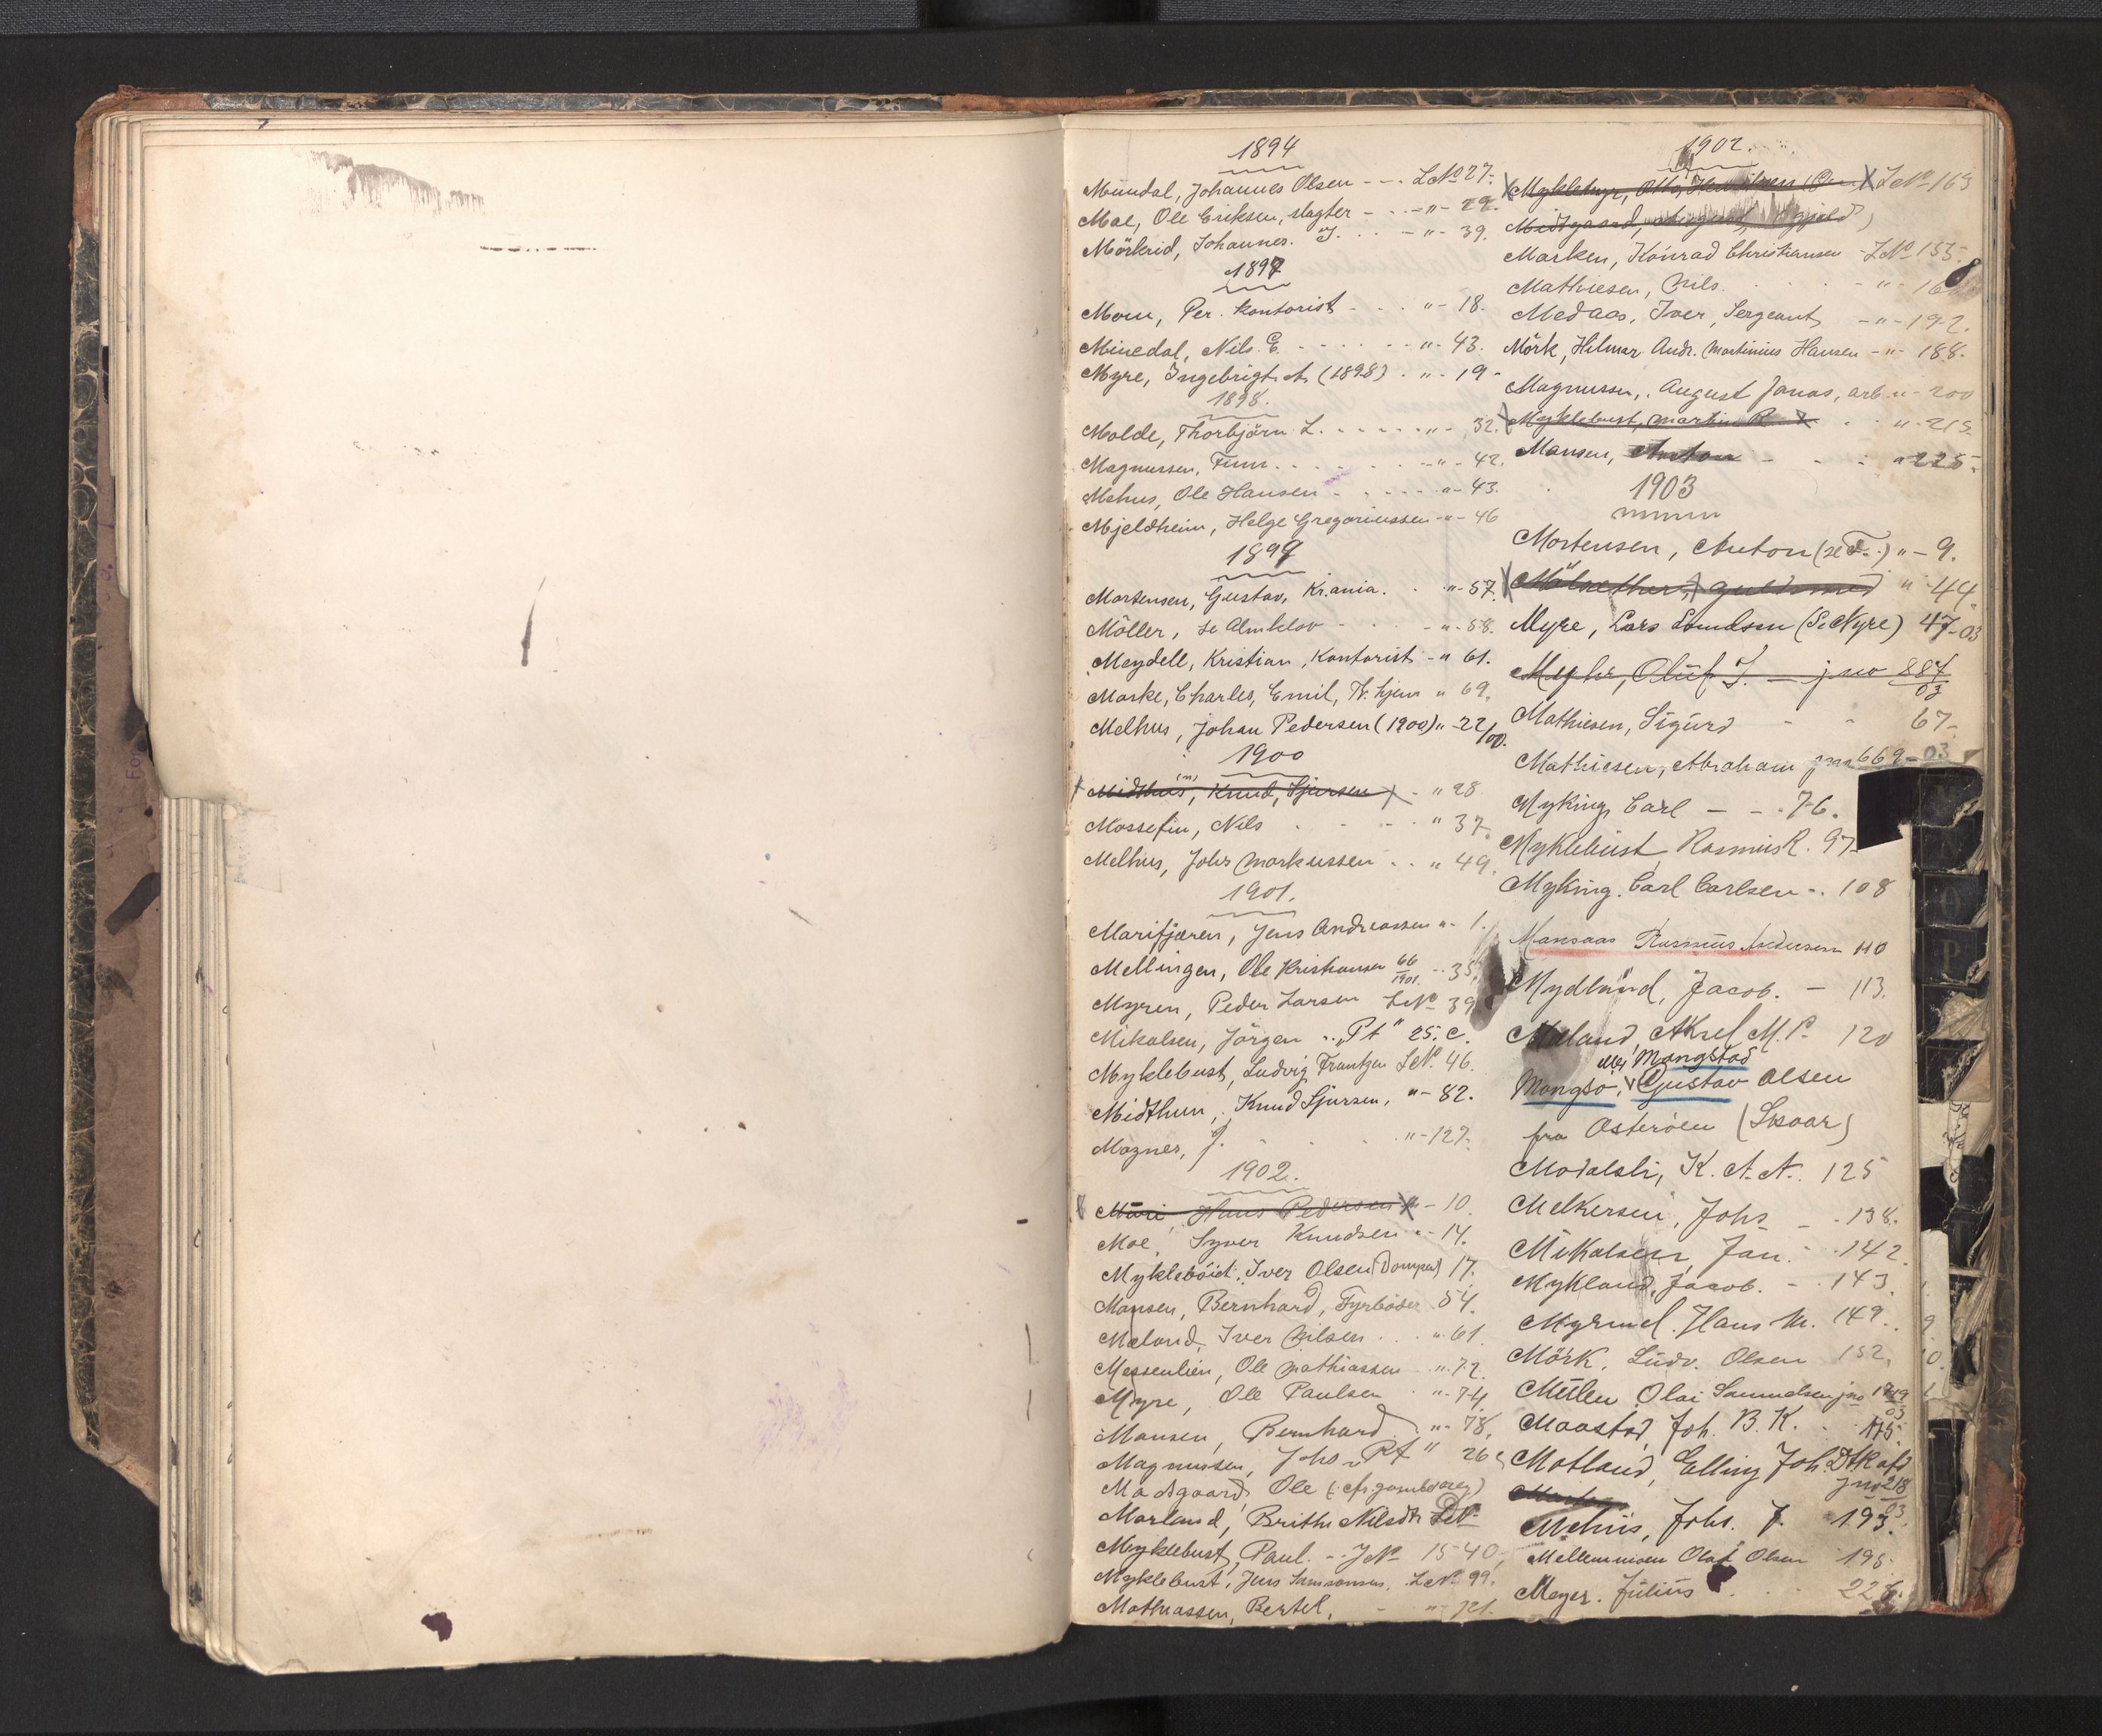 1894
Mundal, Johannes Olsen - - - LNo 27.
Moe, Ole Eriksen, slagter - - - " - 29.
Mörkrid, Johannes. J. . . - " - 39.
1897
Mom, Per. kontorist - . . " - 18.
Minedal, Nils. E. - - - - " - 43.
Myre, Ingebrigt A. (1898) . " - 19 -
1898.
Molde, Thorbjörn L. - - - - " - 32.
Magnussen, Finn. . . . . - " - 42.
Mehus, Ole Hansen - . - - - " - 43.
Mjeldheim, Helge Gregoriussen - " - 46
1899
Mortensen, Gustav, Kr.ania. . " - 57.
Möller, se Almklov - . . . - " - 58.
Meydell, Kristian, Kontorist - " 61.
Marke, Charles, Emil, " 69.
Melhus, Johan Pedersen (1900) " - 22/00.
1900
Midthus, (n) Knud, Sjursen - " 28
Mossefin, Nils . . - - " 37.
Melhus, Johs Markussen . . " 49.
1901.
Marifjæren, Jens Andreassen " - 1.
Mellingen, Ole Kristiansen 66/1901. - 35.
Myren, Peder Larsen LNo 39
Mikalsen, Jörgen - "Pt" 25. c.
Myklebust, Ludvig Frantzen LNo. 46.
Midthun, Knud Sjursen, " - 82.
Mozner, J. - . - . " - 127.
1902.
Hans Pedersen " - 10.
Moe, Syver Knudsen - - 14.
Mykleböist, Iver Olsen 17.
Mansen, Bernhard, Fyrböder 54.
Mæland, Iver Nilsen . . . " 61.
Messenlien, Ole Mathiassen " 72.
Myre, Ole Paulsen . " - 74
Mansen, Bernhard " - 78,
Magnussen, Johs "Pt" 26 c
Madsgaard, Ole
Morland, Brithe Nilsdtr LNo
Myklebust, Paul. - JNo 1540,
Myklebust, Jens Samsonsen, LNo. 99.
Mathiassen, Bertel, - " - 121.
1902.
LNo 169
Midtgaard,
Marken, Konrad Christiansen - LNo 155.
Mathiesen, Nils . . - " -
Medaas, Iver, Sergeant, - " - 192.
Mörk, Hilmar Andr. Martinius Hansen - " - 188.
Magnussen, August Jonas, arb. " - 200
Myklebust, Martin R. . " 215
Mansen, Anton - - : " 225.
1903
Mortensen, Anton " - 9.
guldsmed " - 44.
Myre, Lars 47-03
Myhr, Oluf J. — j no 887/03
Mathiesen, Sigurd - - 67-
Mathiesen, Abraham jno 669-03
Myking, Carl — - . 76.
Myklebust, Rasmus R. 97-
Myking. Carl Carlsen - . 108
Mansaas Rasmus Andersen 110
Mydland, Jacob. — 113.
Mæland, Aksel M. P. 120
eller Mongstad
Mongsö, v Gustav Olsen
fra Osteröen
Modalsli, K. A. A. 125
Melkersen, Johs - . 138.
Mikalsen, Jan. - . 142.
Mykland, Jacob. - . 143.
Myrmel. Hans M. 149.
Mörk, Ludv. Olsen 152,
Müller, Olai Samuelsen jno 1719/03
Maastad, Joh. B. K. . 175.
Motland, Elling Joh.
jno 218/03
Mehus, Johs. J. 193.
Mellemmoen Olaf Olsen 195
Meyer. Julius . . . 226.